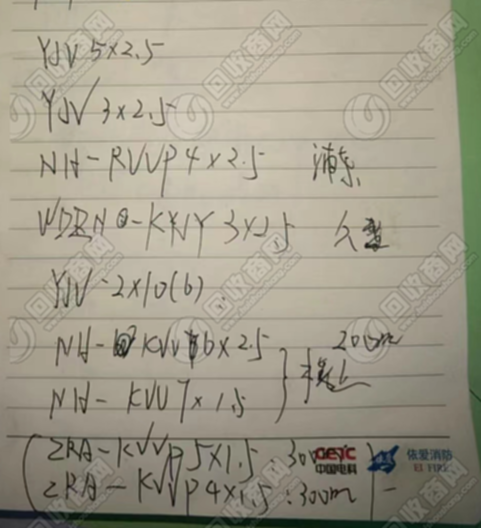 YJV 5×2.5
YJV 3×2.5
NH-RVVP 4×2.5 浦东
WDZN-KYJY 3×2.5 久
YJV-2×10(6)
NH-KVV 6×2.5
200m
NH-KVV 7×1.5
ZRA-KVVP 5×1.5 30
ZRA-KVVP 4×1.5:300m
CETC
中国电科
依爱消防
EI FIRE
回收商网